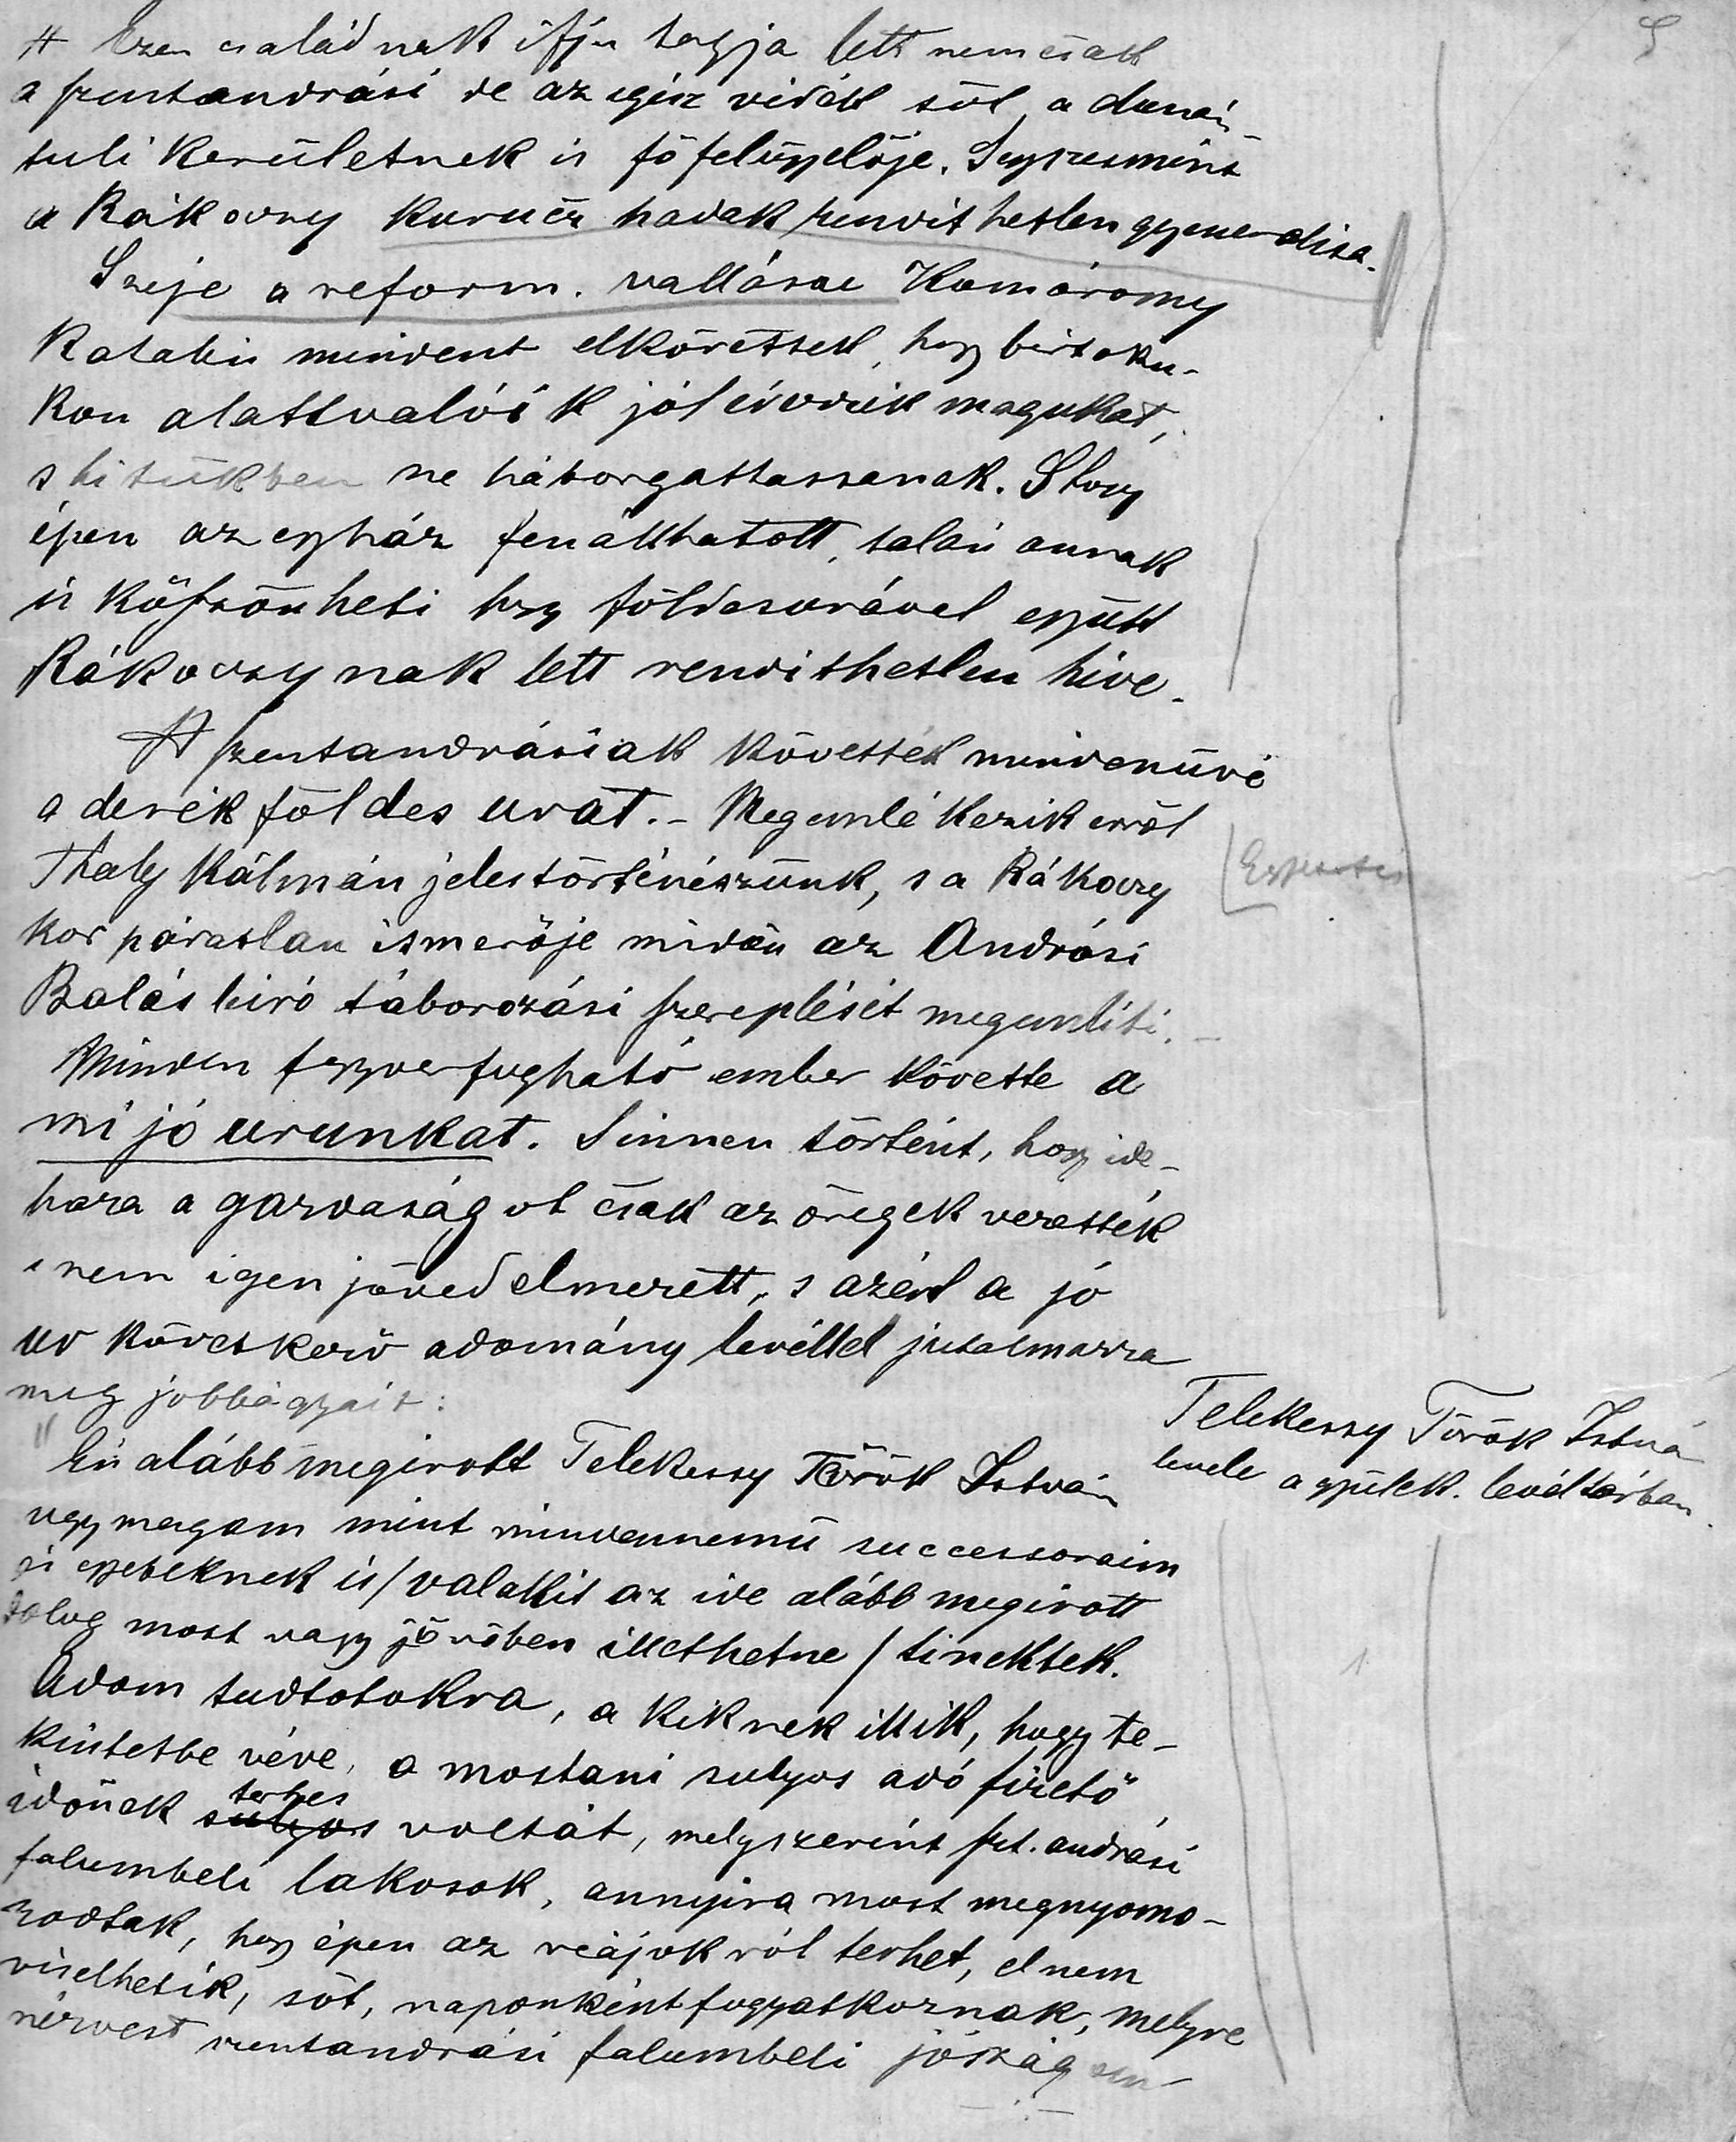 Ezen családnak ifju tagja lett nemcsak
a szentandrási de az egész vidék sőt a dunán-
tuli kerületnek is főfelügyelője. Egyszersmint
a Rákoczy kurucz hadak rendithetlen generálisa.
Neje a reform. vallásu Komáromy
Katalin mindent elkövettek, hogy birtoku-
kon alattvalóik jól érezzék magukat,
s hitükben ne háborgattassanak. S hogy
épen az egyház fenálhatott, talán annak
is köszönheti hogy földesurával együtt
Rákoczynak lett rendithetlen hive.
A szentandrásiak követték mindenüvé
a derék földes urat. - Megemlékezik erről
Thaly Kálmán jeles történészünk, s a Rákoczy
kor páratlan ismerője midőn az Andrási
Balás biró táborozási szereplését megemliti. -
Minden fegyverfogható ember követte a
mi jó urunkat. S innen történt, hogy ide-
haza a gazdaságot csak az öregek vezették
s nem igen jövedelmezett, s azért a jó
ur következő adomány levéllel jutalmazza
meg jobbágyait:
Telekessy Török Istvá
levele a gyülek. levéltárban
"Én alább megirott Telekessy Török István
ugy magam mint mindennemü successoraim
és egyebeknek is / valakit az ide alább megirott
dolog most vagy jövőben illethetne / tinektek.
Adom tudtotokra, a kiknek illik, hogy te-
kintetbe véve, a mostani sulyos adó fizető
időnek sulyos terhes voltát, melyszerint szt. andrási
falumbeli lakosok, annyira most megnyomo-
rodtak, hogy épen az reájok ról terhet, el nem
viselhetik, sőt, naponként fogyatkoznak, melyre
nézvest szentandrási falumbeli jószág